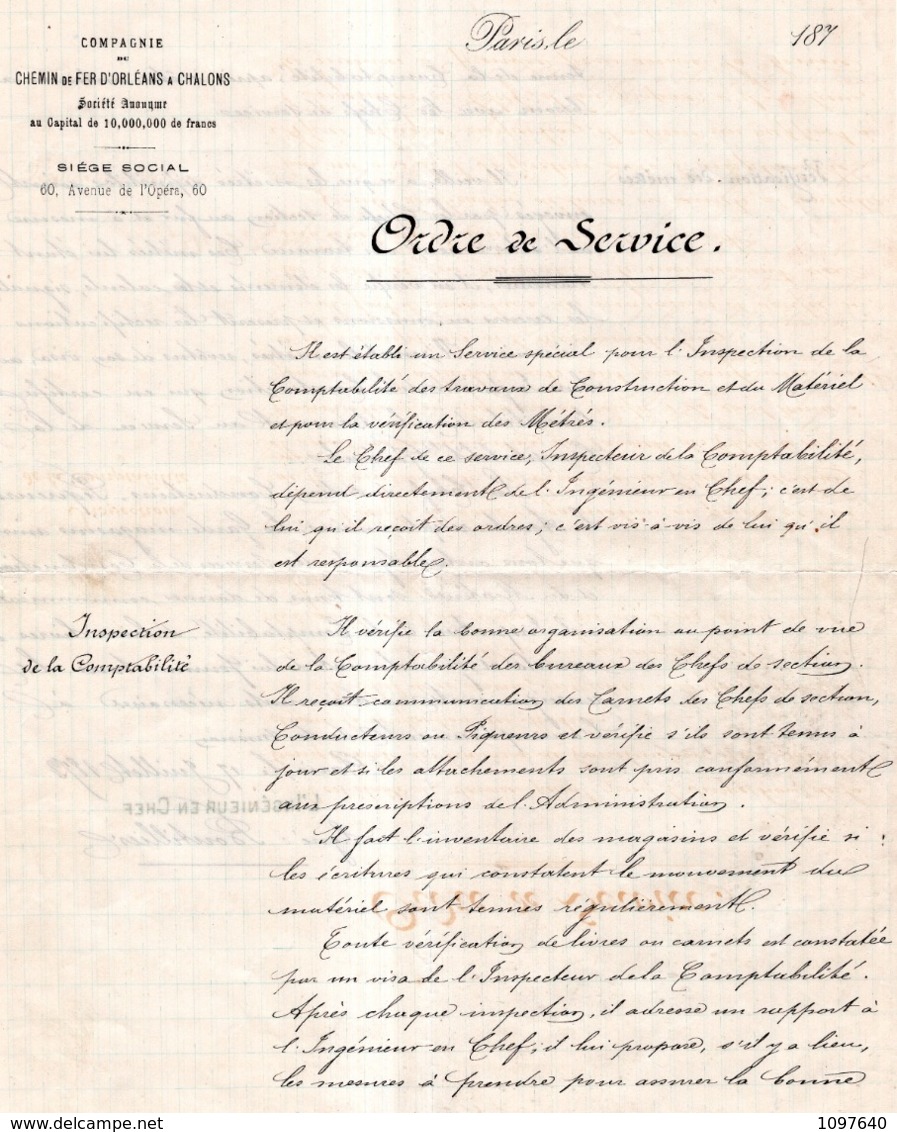 COMPAGNIE
DU
CHEMIN DE FER D'ORLÉANS A CHALONS
Société Anonyme
au Capital de 10,000,000 de francs
SIÉGE SOCIAL
60, Avenue de l'Opéra, 60
Paris, le 187
Ordre de Service.
Il est établi un Service spécial pour l'Inspection de la
Comptabilité des travaux de Construction et du Matériel
et pour la vérification des Métrés.
Le Chef de ce service, Inspecteur de la Comptabilité,
dépend directement de l'Ingénieur en Chef; c'est de
lui qu'il reçoit des ordres; c'est vis à vis de lui qu'il
est responsable.
Inspection
de la Comptabilité
Il vérifie la bonne organisation au point de vue
de la Comptabilité des bureaux des Chefs de section.
Il reçoit communication des Carnets des Chefs de section,
Conducteurs ou Piqueurs et vérifie s'ils sont tenus à
jour et si les attachements sont pris conformément
aux prescriptions de l'Administration.
Il fait l'inventaire des magasins et vérifie si
les écritures qui constatent le mouvement du
matériel sont tenues régulièrement.
Toute vérification de livres ou carnets est constatée
par un visa de l'Inspecteur de la Comptabilité.
Après chaque inspection, il adresse un rapport à
l'Ingénieur en Chef; il lui propose, s'il y a lieu,
les mesures à prendre pour assurer la bonne
www.delcampe.net
1097640